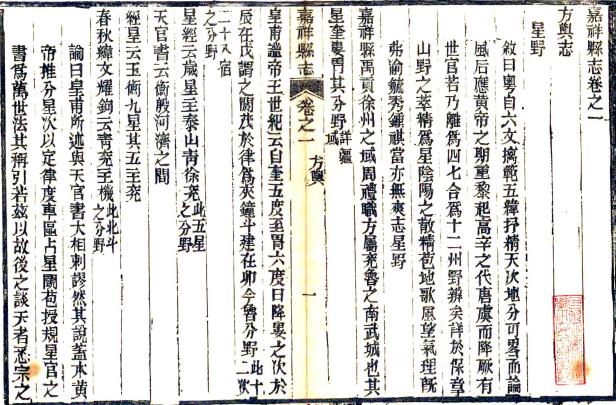 嘉祥縣志卷之一
方輿志
星野
敘曰粵自六文摛範五緯抒精天次地分可畧而論
風后應黃帝之期重黎起高辛之代唐虞而降厥有
世官若乃離爲四七合爲十二州野辨矣詳於保章
山野之萃精爲星陰陽之散精苞地歌風望氣理旣
弗渝毓秀鍾祺當亦無爽志星野
嘉祥縣禹貢徐州之域周禮職方屬兗魯之南武城也其
星奎婁胃其分野詳疆域
嘉祥縣志 卷之一 方輿 一
皇甫謐帝王世紀云自奎五度至胃六度曰降婁之次於
辰在戌謂之閹茂於律爲夾鐘斗建在卯今魯分野此十二次
二十八宿之分野
星經云歲星主泰山靑徐兗此五星之分野
天官書云衡殷河濟之間
經星云玉衡九星其五主兗
春秋緯文耀鉤云靑兗主機此北斗之分野
論曰皇甫所述與天官書大相剌謬然其說蓋本黃
帝推分星次以定律度專區占星闕苞授規星官之
書爲萬世法其稱引若玆以故後之談天者悉宗之